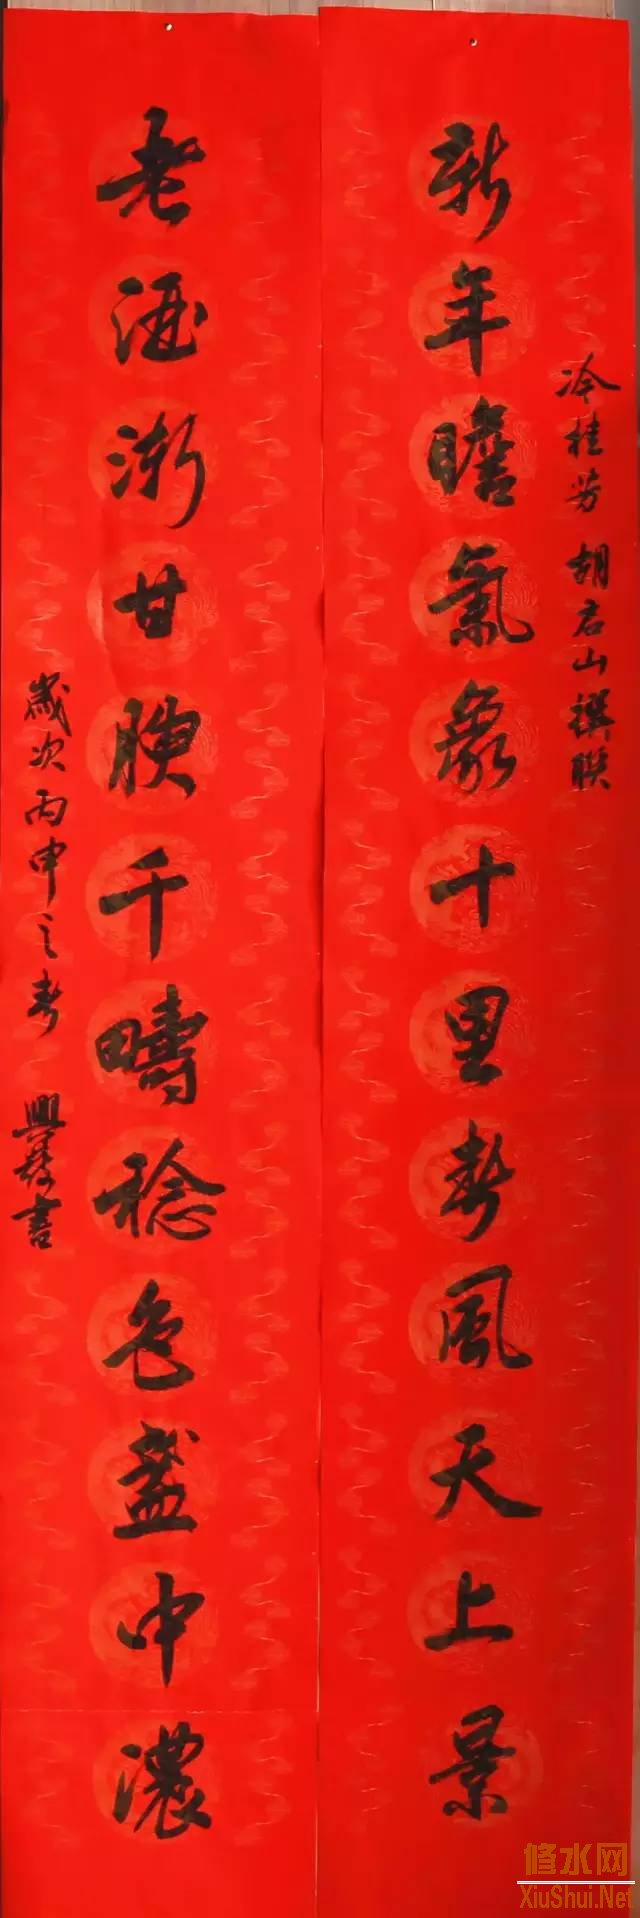 冷桂芳 胡山撰联
新年瞻氣象十里春風天上景
老酒漸甘腴千疇稔色盞中濃
歲次丙申之春 興書
修水网
XiuShui.Net